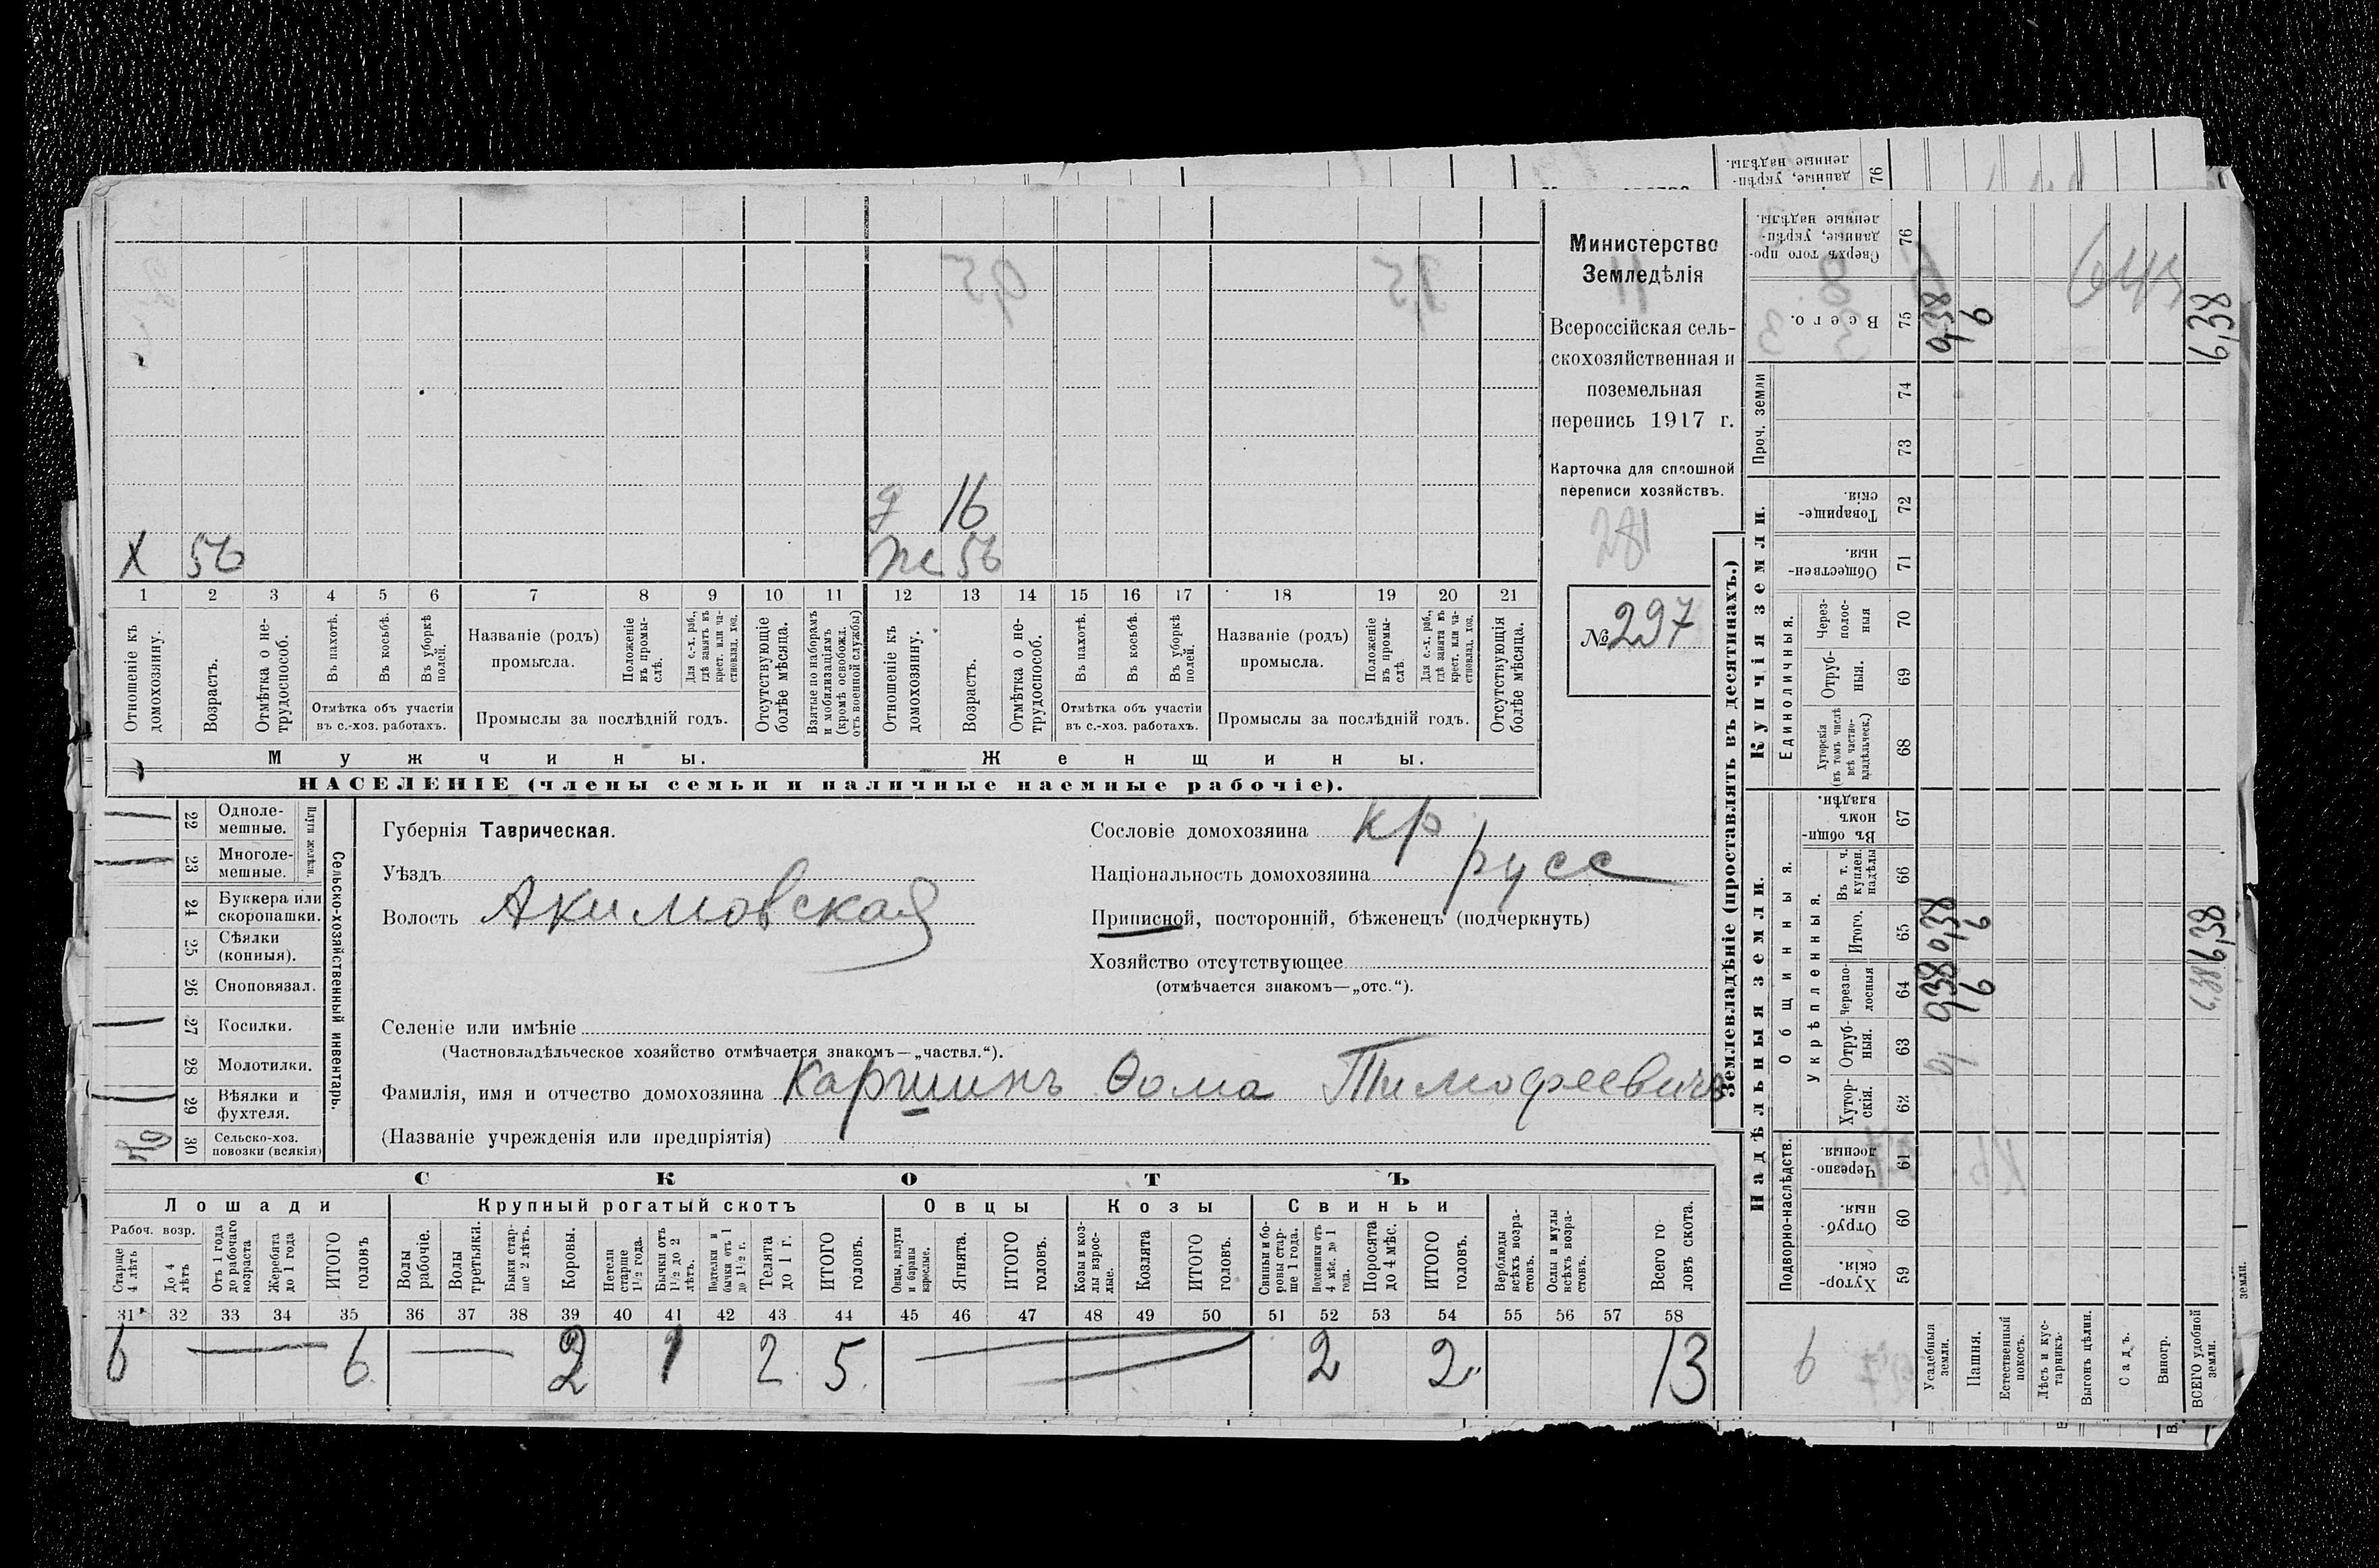 Министерство
Земледѣлія
Всероссійская сель-
скохозяйственная и
поземельная
перепись 1917 г.
Карточка для сплошной
переписи хозяйствъ.
281
№ 297
д 16
х 56 ж 56
1 2 3 4 5 6 7 8 9 10 11 12 13 14 15 16 17 18 19 20 21
Отношеніе къ домохозяину.
Возрастъ.
Отмѣтка о не-трудоспособ.
Въ пахотѣ.
Въ косьбѣ.
Въ уборкѣ полей.
Отмѣтка объ участіи
въ с.-хоз. работахъ.
Названіе (родъ)
промысла.
Положеніе въ промы-слѣ.
Для с.-х. раб., гдѣ занятъ въ крест. или ча-стновлад. хоз.
Промыслы за послѣдній годъ.
Отсутствующіе болѣе мѣсяца.
Взятые по наборамъ и мобилизаціямъ (кромѣ освобожд. отъ военной службы)
Отношеніе къ домохозяину.
Возрастъ.
Отмѣтка о не-трудоспособ.
Въ пахотѣ.
Въ косьбѣ.
Въ уборкѣ полей.
Отмѣтка объ участіи
въ с.-хоз. работахъ.
Названіе (родъ)
промысла.
Положеніе въ промы-слѣ
Для с.-х. раб., гдѣ занята въ крест. или ча-стновлад. хоз.
Промыслы за послѣдній годъ.
Отсутствующія болѣе мѣсяца.
Мужчины. Женщины.
НАСЕЛЕНІЕ (члены семьи и наличные наемные рабочіе).
Сельско-хозяйственный инвентарь.
Плуги желѣзн.
22 Одноле-мешные.
23 Многоле-мешные.
24 Буккера или скоропашки.
25 Сѣялки (конныя).
26 Сноповязал.
27 Косилки.
28 Молотилки.
29 Вѣялки и фухтеля.
30 Сельско-хоз. повозки (всякія)
Губернія Таврическая.
Уѣздъ
Волость Акимовская
Сословіе домохозяина кр
Національность домохозяина русс
Приписной, посторонній, бѣженецъ (подчеркнуть)
Хозяйство отсутствующее
(отмѣчается знакомъ—„отс.“).
Селеніе или имѣніе
(Частновладѣльческое хозяйство отмѣчается знакомъ—„частвл.“).
Фамилія, имя и отчество домохозяина Каршинъ Ѳома Тимофеевичъ
(Названіе учрежденія или предпріятія)
СКОТЪ
Лошади Крупный рогатый скотъ Овцы Козы Свиньи
Рабоч. возр.
Старше 4 лѣтъ
До 4 лѣтъ
Отъ 1 года до рабочаго возраста
Жеребята до 1 года
ИТОГО головъ
Волы рабочіе.
Волы третьяки.
Быки стар-ше 2 лѣтъ.
Коровы.
Нетели старше 1 1/2 года.
Бычки отъ 1 1/2 до 2 лѣтъ.
Подтелки и бычки отъ 1 до 1 1/2 г.
Телята до 1 г.
ИТОГО головъ.
Овцы, валухи и бараны взрослые.
Ягнята.
ИТОГО головъ.
Козы и коз-лы взрос-лые.
Козлята
ИТОГО головъ.
Свиньи и бо-ровы стар-ше 1 года.
Подсвинки отъ 4 мѣс. до 1 года.
Поросята до 4 мѣс.
ИТОГО головъ.
Верблюды всѣхъ возра-стовъ.
Ослы и мулы всѣхъ возра-стовъ.
Всего го-ловъ скота.
31 32 33 34 35 36 37 38 39 40 41 42 43 44 45 46 47 48 49 50 51 52 53 54 55 56 57 58
6 6 2 1 2 5 2 2 13
Землевладѣніе (проставлять въ десятинахъ.)
Надѣльныя земли. Купчія земли. Проч. земли
Подворно-наслѣдств.
Общинныя.
Укрѣпленныя.
Единоличныя.
59 Хутор-скія.
60 Отруб-ныя.
61 Черезпо-лосныя.
62 Хутор-скія.
63 Отруб-ныя.
64 Черезпо-лосныя
65 Итого.
66 Въ т. ч. куплен. надѣлы
67 Въ общин-номъ владѣн.
68 Хуторскія (въ томъ числѣ всѣ частно-владѣльческ.)
69 Отруб-ныя.
70 Через-полос-ныя
71 Обществен-ныя
72 Товарище-скія.
73
74
75 Всего.
76 Сверхъ того про-данные, укрѣп-ленные надѣлы.
Усадебныя земли. 0,38 0,38 0,38
Пашня. 6 6 6
Естественный покосъ.
Лѣсъ и кус-тарникъ.
Выгонъ цѣлин.
Садъ.
Виногр.
ВСЕГО удобной земли. 6,38 6,38 6,38